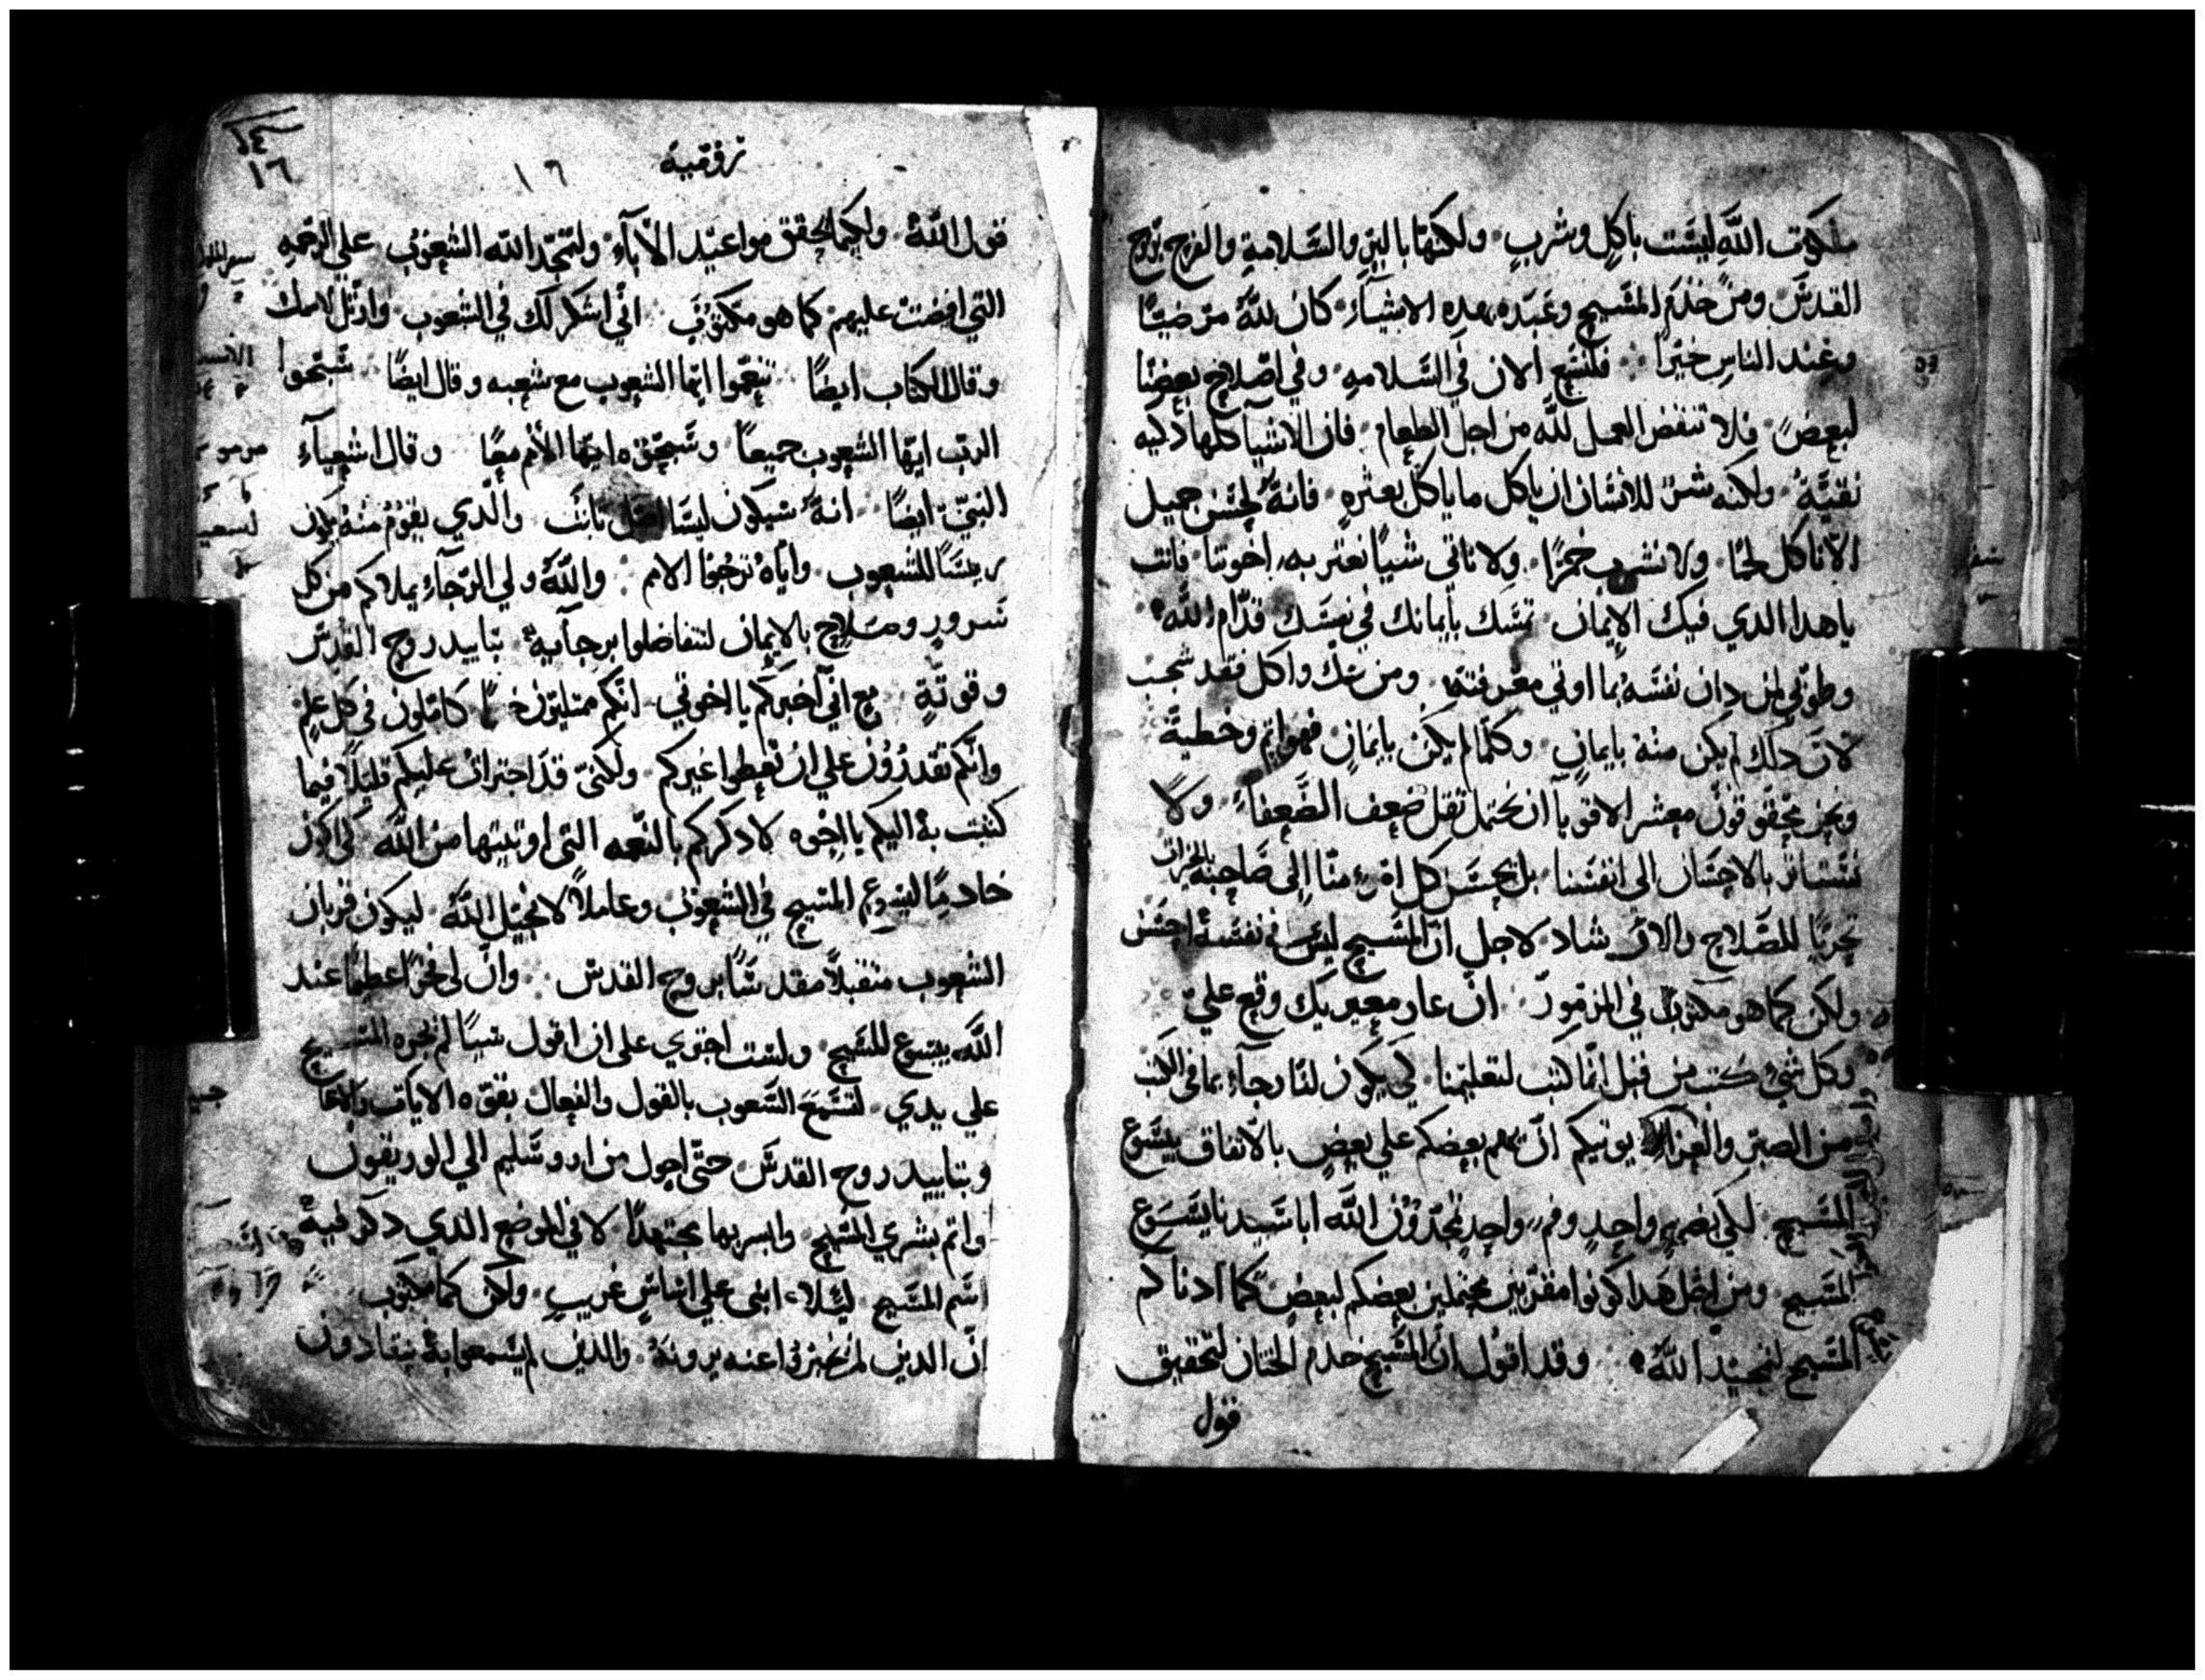 ملكوت الله ليست باكل وشرب ولكنها بالبر والسلامة والفرح بروح
القدس ومن خدم المسيح وعبده بهده الاشياء كان لله مرضيا
وعند الناس خيرا فلنسع الان في السلامه وفي اصلاح بعضنا
لبعض فلا تنقض العمل لله من اجل الطعام فان الاشيا كلها دكيه
نقية ولكنه شر للانسان ان ياكل ما ياكل بعثره فانه لحسن جميل
الا ناكل لحما ولا نشرب خمرا ولا ناتي شيا نعتر به اخوتنا فانت
ياهدا الدي فيك الايمان تمسك بايمانك في نفسك قدام الله
وطوبى لمن دان نفسه بما اوتي معرفته ومن شك واكل فقد شجب
لان دلك لم يكن منه بايمان وكلما لم يكن بايمان فهو اثم وخطية
ونحن محقوقون معشر الاقويا ان نحتمل ثقل ضعف الضعفاء ولا
نستاثر بالاحسان الى انفسنا بل يحسن كل امرء منا الى صاحبه بالخيرات
تحريا للصلاح والارشاد لاجل ان المسيح ليس نفسه احسن
ولكن كما هو مكتوب في المزمور ان عار معيريك وقع علي
وكل شيء كتب من قبل انما كتب لتعليمنا كي يكون لنا رجاء بما في الكتب
من الصبر والعزا يوتيكم ان تهم بعضكم علي بعض بالاتفاق بيسوع
المسيح لكي بضمير واحد وفم واحد تمجدون الله ابا سيدنا يسوع
المسيح ومن اجل هدا كونوا مقربين محتملين بعضكم لبعض كما ادناكم
المسيح لتمجيد الله وقد اقول ان المسيح خدم الختان لتحقيق
قول
١٦
روميه
١٦
قول الله ولكيما يحقق مواعيد الاباء ولتمجد الله الشعوب علي الرحمه
التي افيضت عليهم كما هو مكتوب اني اشكر لك في الشعوب وارتل لاسمك
وقال الكتاب ايضا تنعموا ايها الشعوب مع شعبه وقال ايضا سبحوا
الرب ايها الشعوب جميعا وسبحوه ايها الامم معا وقال اشعياء
النبي ايضا انه سيكون ليسا اصل ثابت والدي يقوم منه يكون
ريسا للشعوب واياه ترجوا الامم والله ولي الرجاء يملاكم من كل
سرور وصلاح بالايمان لتتفاضلوا برجائه بتاييد روح القدس
وقوته مع اني اخبركم يا اخوتي انكم ممتليون كاملون في كل علم
وانكم تقدرون علي ان تعظوا غيركم ولكني قد اجترات عليكم قليلا فيما
كتبت به اليكم يا اخوه لادكركم بالنعمه التي اوتيتها من الله كي اكون
خادما ليسوع المسيح في الشعوب وعاملا لانجيل الله ليكون قربان
الشعوب متقبلا مقدسا بروح القدس وان لي فخرا عظيما عند
الله بيسوع المسيح ولست اجتري على ان اقول شيا لم يجره المسيح
علي يدي لتسمع الشعوب بالقول والفعال بقوه الايات والاعا
وبتاييد روح القدس حتى اجول من اورشليم الي الوريقون
واتم بشري المسيح وابسر بها مجتهدا لا في الموضع الدي دكر فيه
اسم المسيح ليلا ابني علي اساس غريب ولكن كما مكتوب
ان الدين لم يخبروا عنه يرونه والدين لم يسمعوا به ينقادون